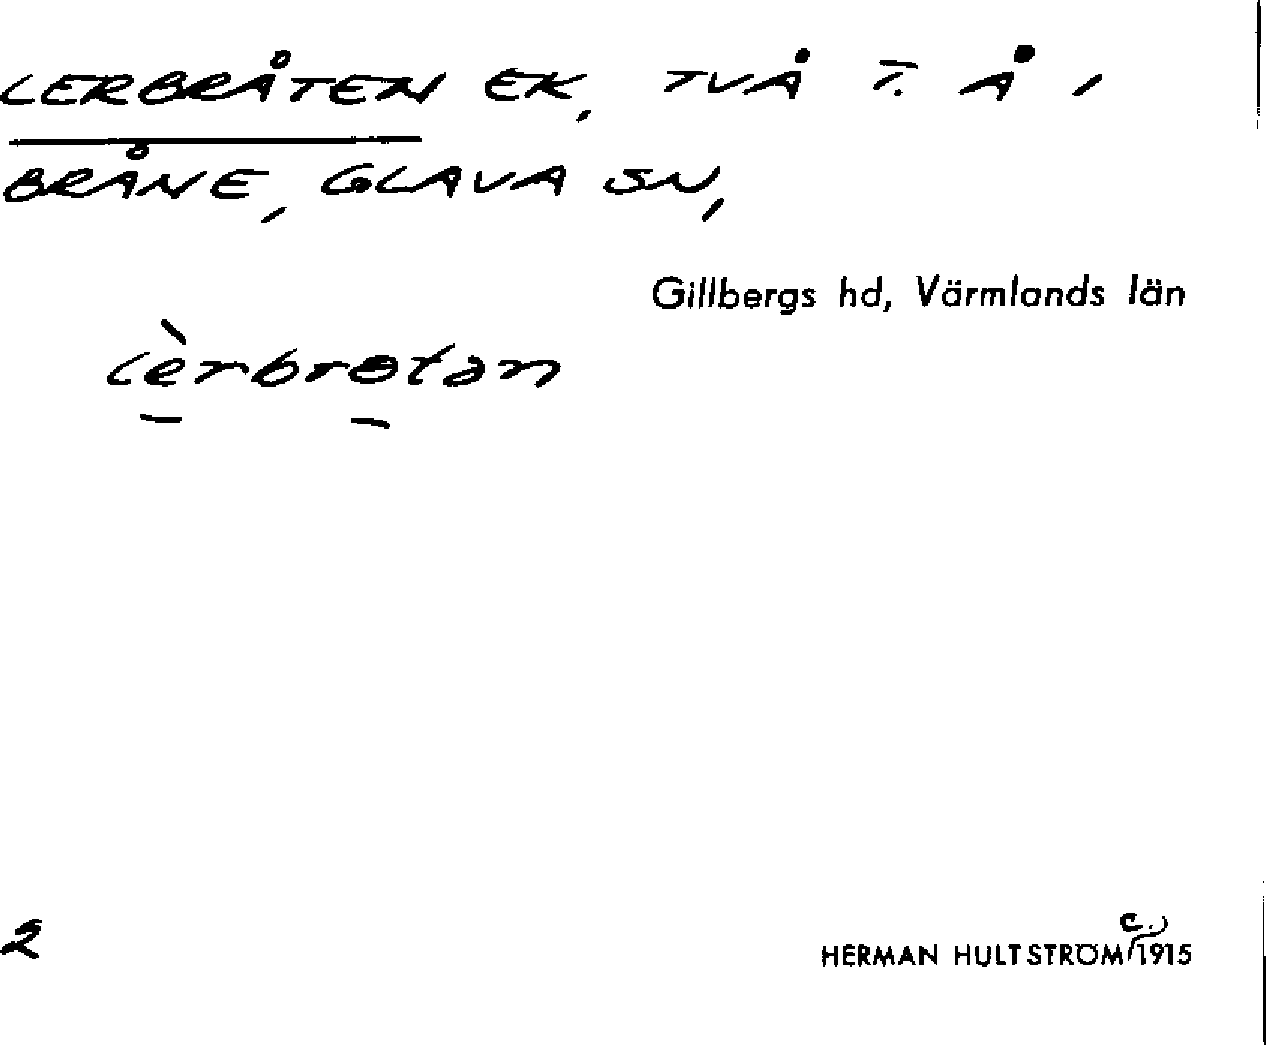 LERBRÅTEN EK, TVÅ T. Å I
BRÅNE, GLAVA SN,
Gillbergs hd, Värmlands län
lèrbrɵtən
2
HERMAN HULTSTRÖM (C.) 1915